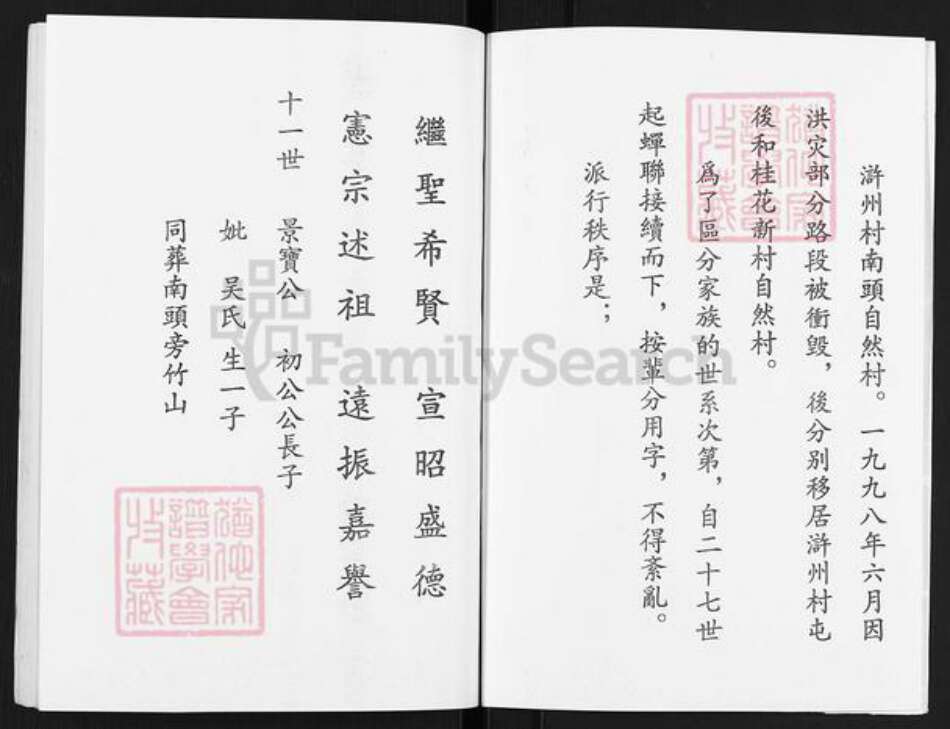 滸州村南頭自然村。一九九八年六月因
洪灾部分路段被衝毀，後分别移居滸州村屯
後和桂花新村自然村。
爲了區分家族的世系次第，自二十七世
起蟬聯接續而下，按輩分用字，不得紊亂。
派行秩序是：
繼聖希賢　宣昭盛德
憲宗述祖　遠振嘉譽
十一世　景寶公　初公公長子
妣　吴氏　生一子
同葬南頭旁竹山
猶他家
譜學會
收藏
猶他家
譜學會
收藏
FamilySearch